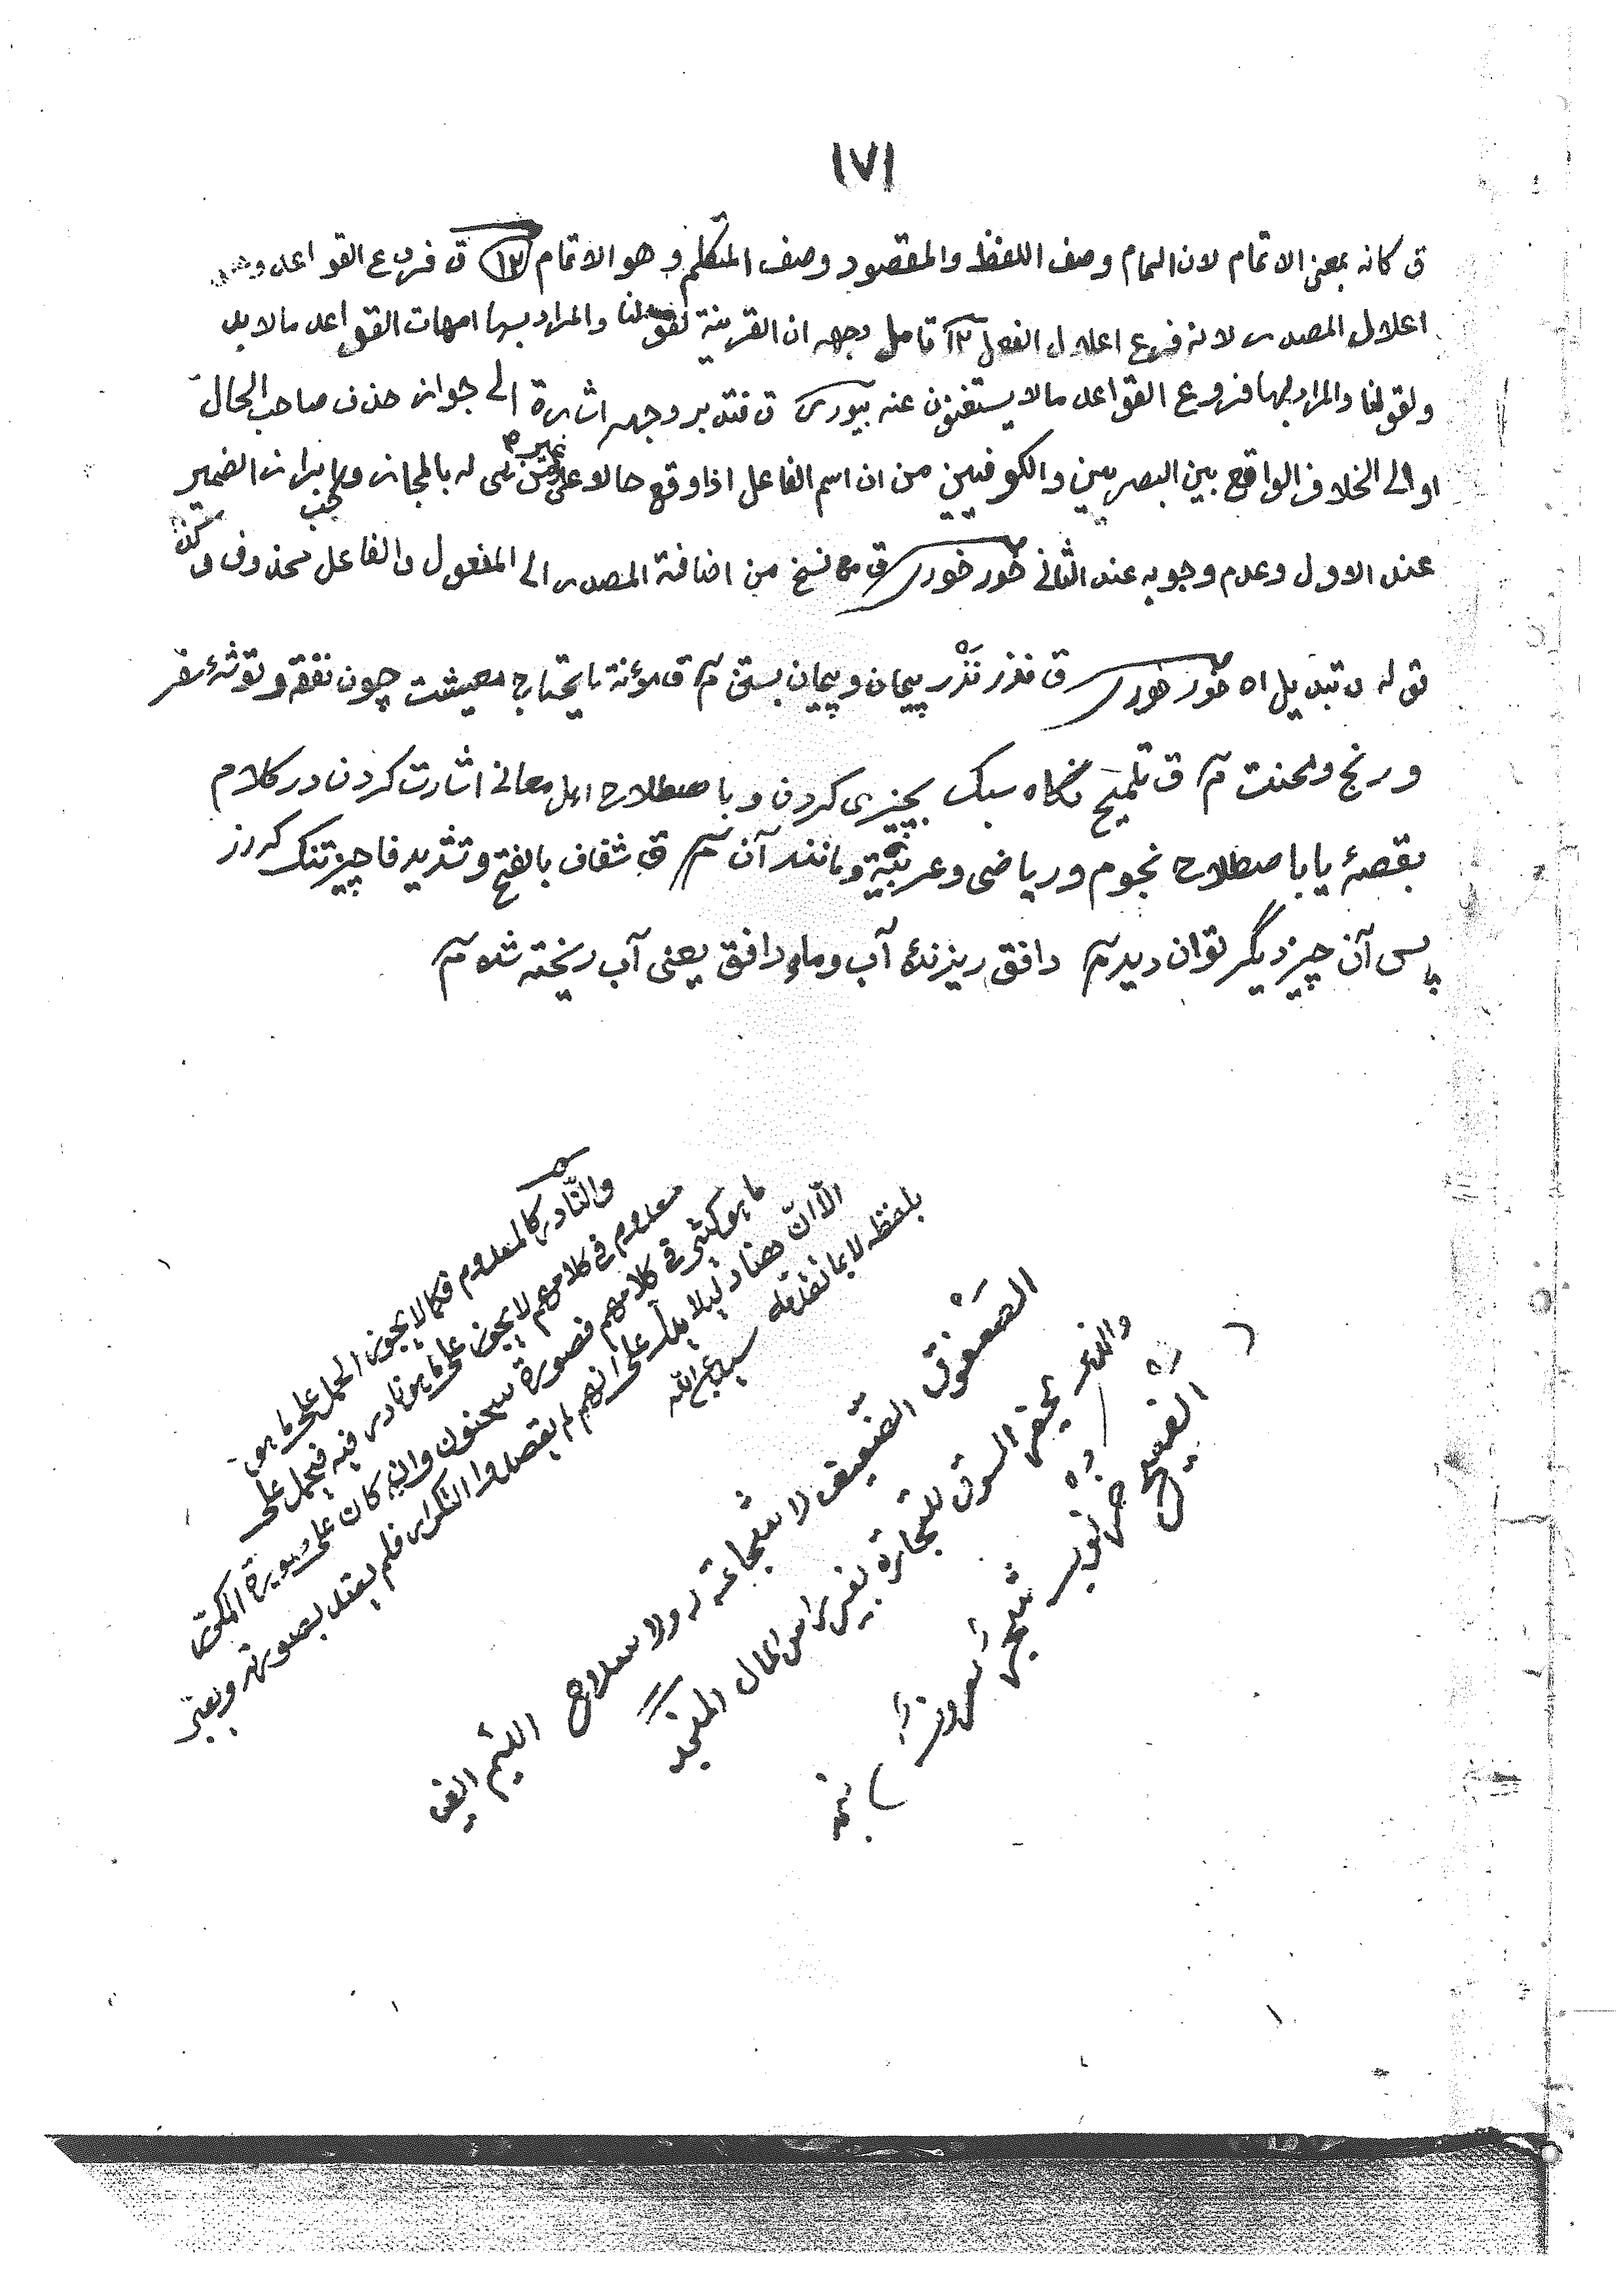 ١٧١
ق كانه بمعنى الاتمام لان التمام وصف اللفظ والمقصود وصف المتكلم و هو الاتمام ١٢ ق فروع القواعد
اعلال المصدر لانه فرع اعلال الفعل ١٢ تامل وجهه ان القرينة لقولنا والمراد بها امهات القواعد مالابد
ولقولنا والمراد بها فروع القواعد مالا يستغنون عنه ق فتدبر وجهه اشارة الى جواز حذف صاحب الحال
او الى الخلاف الواقع بين البصريين والكوفيين من ان اسم الفاعل اذا وقع حالا على غير من هى له بالمجاز و يجب ابراز الضمير
عند الاول وعدم وجوبه عند الثانى ق مع نسخ من اضافة المصدر الى المفعول والفاعل محذوف
قوله وتبديل اه ق نذر نَذْر پيمان و پيمان بستن م ق مؤنة ما يحتاج معيشت چون نفقه و توشهٔ سفر
و رنج و محنت م ق تلميح نگاه سبک بچيزى كردن و با صطلاح اهل معانى اشارت كردن در كلام
بقصهٔ يا با صطلاح نجوم و رياضى و عربيّة و مانند آن م ق شفاف بالفتح و تشديد فا چيز تنک كه از
پس آن چيز ديگر توان ديد م دافق ريزندهٔ آب وماء دافق يعنى آب ريخته شده م
والنّادر كالمعدوم فكما لا يجوز الحمل على ما هو
معدوم فى كلامهم لا يجوز على ما هو نادر فيه فيحمل على
ما هو كثير فى كلامهم فصورة سحنون وان كان على صورة المكرّر
الّا انّ هنا دليلا يدلّ على انهم لم يقصدوا التكرار فلم يعتد بصورته ويعتبر
بلفظه لا بما تقدّمه سيد عبد الله
الصَعْفُوق الضّعيف لا شجاعة له ولا سلاح اللئيم
والذى يحضر السوق للتجارة بغير راس المال المنجد
الفصيح خرنوب شجر